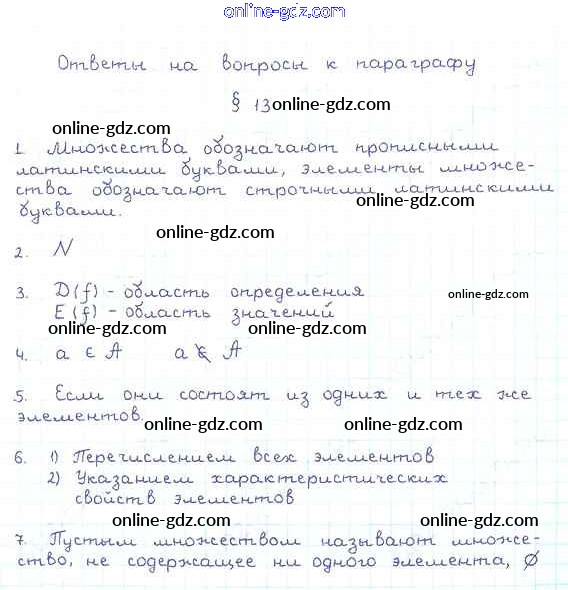 online-gdz.com
Ответы на вопросы к параграфу
§ 13 online-gdz.com
online-gdz.com
1. Множества обозначают прописными
латинскими буквами, элементы множе-
ства обозначают строчными латинскими
online-gdz.com
буквами.
online-gdz.com
2. N
3. D(f) - область определения
online-gdz.com
E(f) - область значений
online-gdz.com online-gdz.com
4. a ∈ A a ∉ A
5. Если они состоят из одних и тех же
элементов.
online-gdz.com online-gdz.com
6. 1) Перечислением всех элементов
2) Указанием характеристических
свойств элементов
online-gdz.com online-gdz.com
7. Пустым множеством называют множе-
ство, не содержащее ни одного элемента, ∅